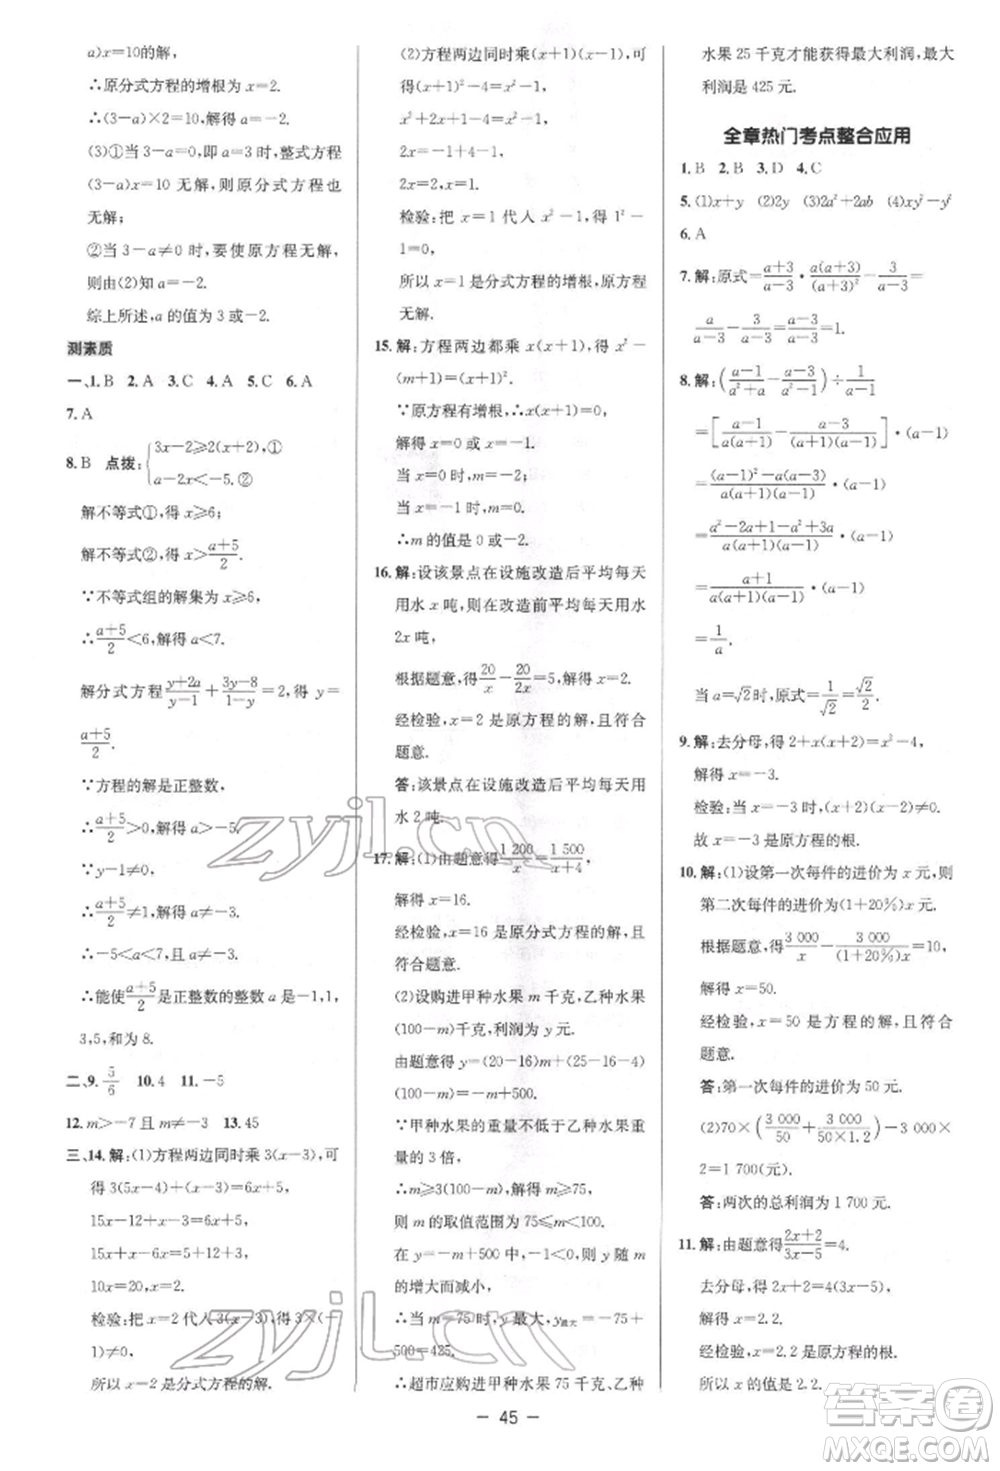 a)x=10的解,
∴原分式方程的增根为x=2.
∴(3-a)×2=10,解得a=-2.
(3)①当3-a=0时,即a=3时,整式方程
(3-a)x=10无解,则原分式方程也
无解;
②当3-a≠0时,要使原方程无解,
则由(2)知,a=-2.
综上所述,a的值为3或-2.
测素质
一、1.B 2.A 3.C 4.A 5.C 6.A
7.A
8.B 点拨:{3x-2≥2(x+2),①
a-2x<-5.②
解不等式①,得x≥6;
解不等式②,得x>(a+5)/2.
∵不等式组的解集为x≥6,
∴(a+5)/2<6,解得a<7.
解分式方程(y+2a)/(y-1)+(3y-8)/(1-y)=2,得y=
(a+5)/2.
∵方程的解是正整数,
∴(a+5)/2>0,解得a>-5.
∵y-1≠0,
∴(a+5)/2≠1,解得a≠-3.
∴-5<a<7,且a≠-3.
∴能使(a+5)/2是正整数的a是-1,1,
3,5,和为8.
二、9.5/6 10.4 11.-5
12.m>-7且m≠-3 13.45
三、14.解:(1)方程两边同时乘3(x-3),可
得3(5x-4)+(x-3)=6x+5,
15x-12+x-3=6x+5,
15x+x-6x=5+12+3,
10x=20,x=2.
检验:把x=2代入3(x-3),得3×(-
1)≠0,
所以x=2是分式方程的解.
(2)方程两边同时乘(x+1)(x-1),可
得(x+1)²-4=x²-1,
x²+2x+1-4=x²-1,
2x=-1-1+4,
2x=2,x=1.
检验:把x=1代入x²-1,得1²-1
=0,
所以x=1是分式方程的增根,原方程
无解.
15.解:方程两边都乘x(x+1),得x²-
(m+1)=(x+1)².
∵原方程有增根,∴x(x+1)=0,
解得x=0或x=-1.
当x=0时,m=-2;
当x=-1时,m=0.
∴m的值是0或-2.
16.解:设该景点在设施改造后平均每天
用水x吨,则在改造前平均每天用水
2x吨,
根据题意,得20/x-20/2x=5,解得x=2.
经检验,x=2是原方程的解,且符合
题意.
答:该景点在设施改造后平均每天用
水2吨.
17.解:(1)由题意得1 200/x=1 500/(x+4),
解得x=16.
经检验,x=16是原分式方程的解,且
符合题意.
(2)设购进甲种水果m千克,乙种水果
(100-m)千克,利润为y元.
由题意得y=(20-16)m+(25-16-4)
(100-m)=-m+500.
∵甲种水果的重量不低于乙种水果重
量的3倍,
∴m≥3(100-m),解得m≥75,
则m的取值范围为75≤m<100.
在y=-m+500中,-1<0,y随m
的增大而减小,
∴当m=75时,y最大,y最大=-75+
500=425.
∴超市应购进甲种水果75千克、乙种
水果25千克才能获得最大利润,最大
利润是425元.
全章热门考点整合应用
1.B 2.B 3.D 4.C
5.(1)x+y (2)2y (3)2a²+2ab (4)xy²-y²
6.A
7.解:原式=(a+3)/(a-3)·a(a+3)/(a+3)²-3/(a-3)=
a/(a-3)-3/(a-3)=(a-3)/(a-3)=1.
8.解:((a-1)/(a²+a)-(a-3)/(a²-1))÷1/(a-1)
=[(a-1)/a(a+1)-(a-3)/(a+1)(a-1)]·(a-1)
=((a-1)²-a(a-3))/a(a+1)(a-1)·(a-1)
=(a²-2a+1-a²+3a)/a(a+1)(a-1)·(a-1)
=(a+1)/a(a+1)(a-1)·(a-1)
=1/a.
当a=√2时,原式=1/√2=√2/2.
9.解:去分母,得2+x(x+2)=x²-4,
解得x=-3.
检验:当x=-3时,(x+2)(x-2)≠0.
故x=-3是原方程的根.
10.解:(1)设第一次每件的进价为x元,则
第二次每件的进价为(1+20%)x元.
根据题意,得3 000/x-3 000/(1+20%)x=10,
解得x=50.
经检验,x=50是方程的解,且符合
题意.
答:第一次每件的进价为50元.
(2)70×(3 000/50+3 000/(50×1.2))-3 000×
2=1 700(元).
答:两次的总利润为1 700元.
11.解:由题意得(2x+2)/(3x-5)=4.
去分母,得2x+2=4(3x-5),
解得x=2.2.
经检验,x=2.2是原方程的根.
所以x的值是2.2.
- 45 -
zyjl.cn
zyjl.cn
答案圈
MXQE.COM